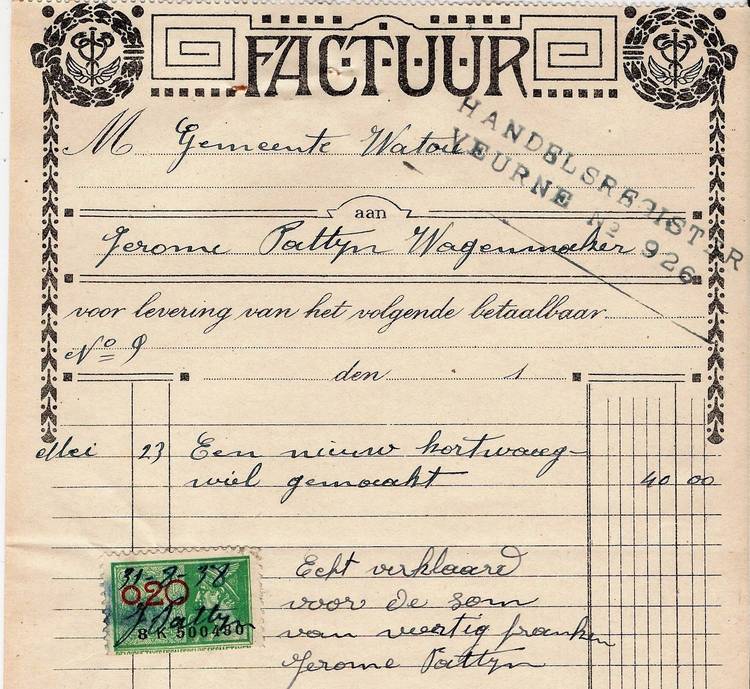 FACTUUR
M Gemeente Watou
HANDELSREGISTER
VEURNE No 926
aan
Jerome Pattyn Wagenmaker
voor levering van het volgende betaalbaar
No 9
den 1
Mei 23 Een nieuw kortwaeg-
wiel gemaakt 40 00
31-8-38
0.20
J Pattyn
8 K 500450
Echt verklaard
voor de som
van veertig franken
Jerome Pattyn